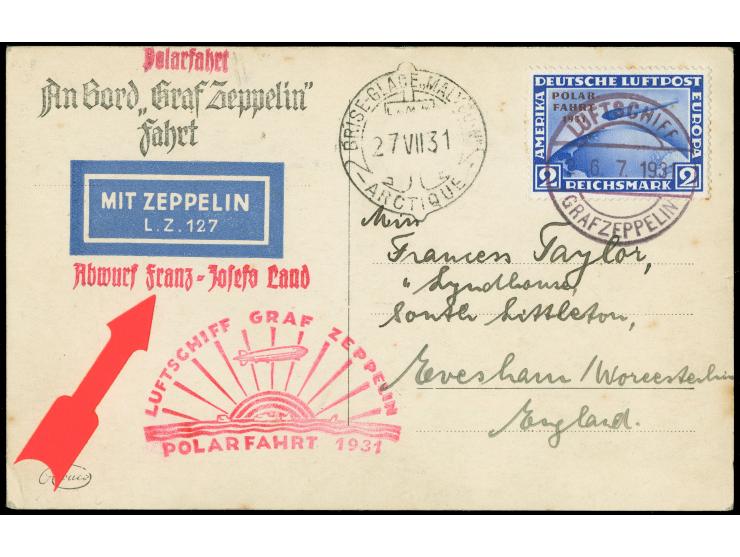 Polarfahrt
An Bord „Graf Zeppelin"
Fahrt
MIT ZEPPELIN
L.Z.127
Abwurf Franz-Josefs Land
LUFTSCHIFF GRAF ZEPPELIN
POLARFAHRT 1931
BRISE-GLACE „MALYGUIN"
27 VII 31
ARCTIQUE
DEUTSCHE LUFTPOST
AMERIKA
EUROPA
POLAR-
FAHRT
1931
2 REICHSMARK 2
LUFTSCHIFF
6. 7. 193
GRAF ZEPPELIN
Miss
Frances Taylor,
"Lyndhouse,
South Littleton,
Evesham/Worcestershire
England.